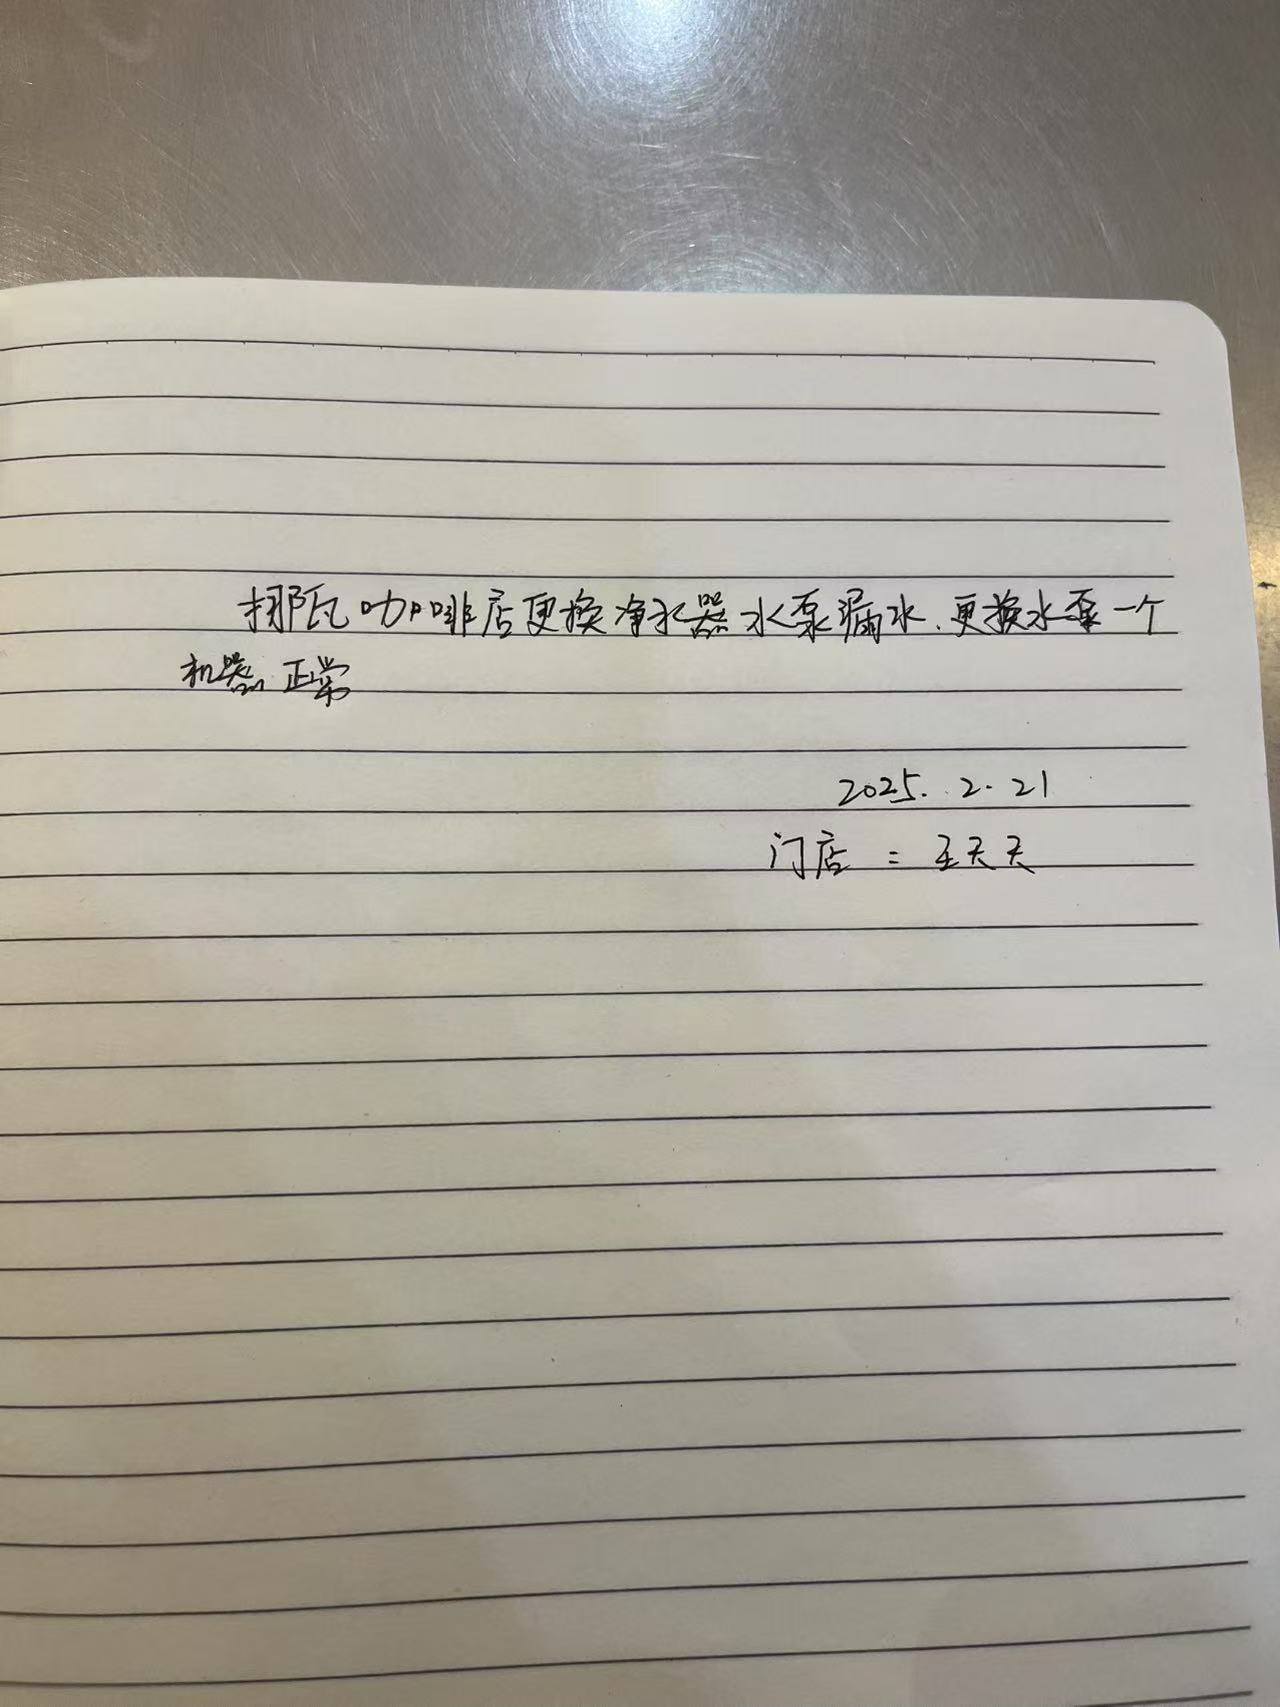 挪瓦咖啡店更换净水器水泵漏水.更换水泵一个
机器正常
2025.2.21
门店:王天天